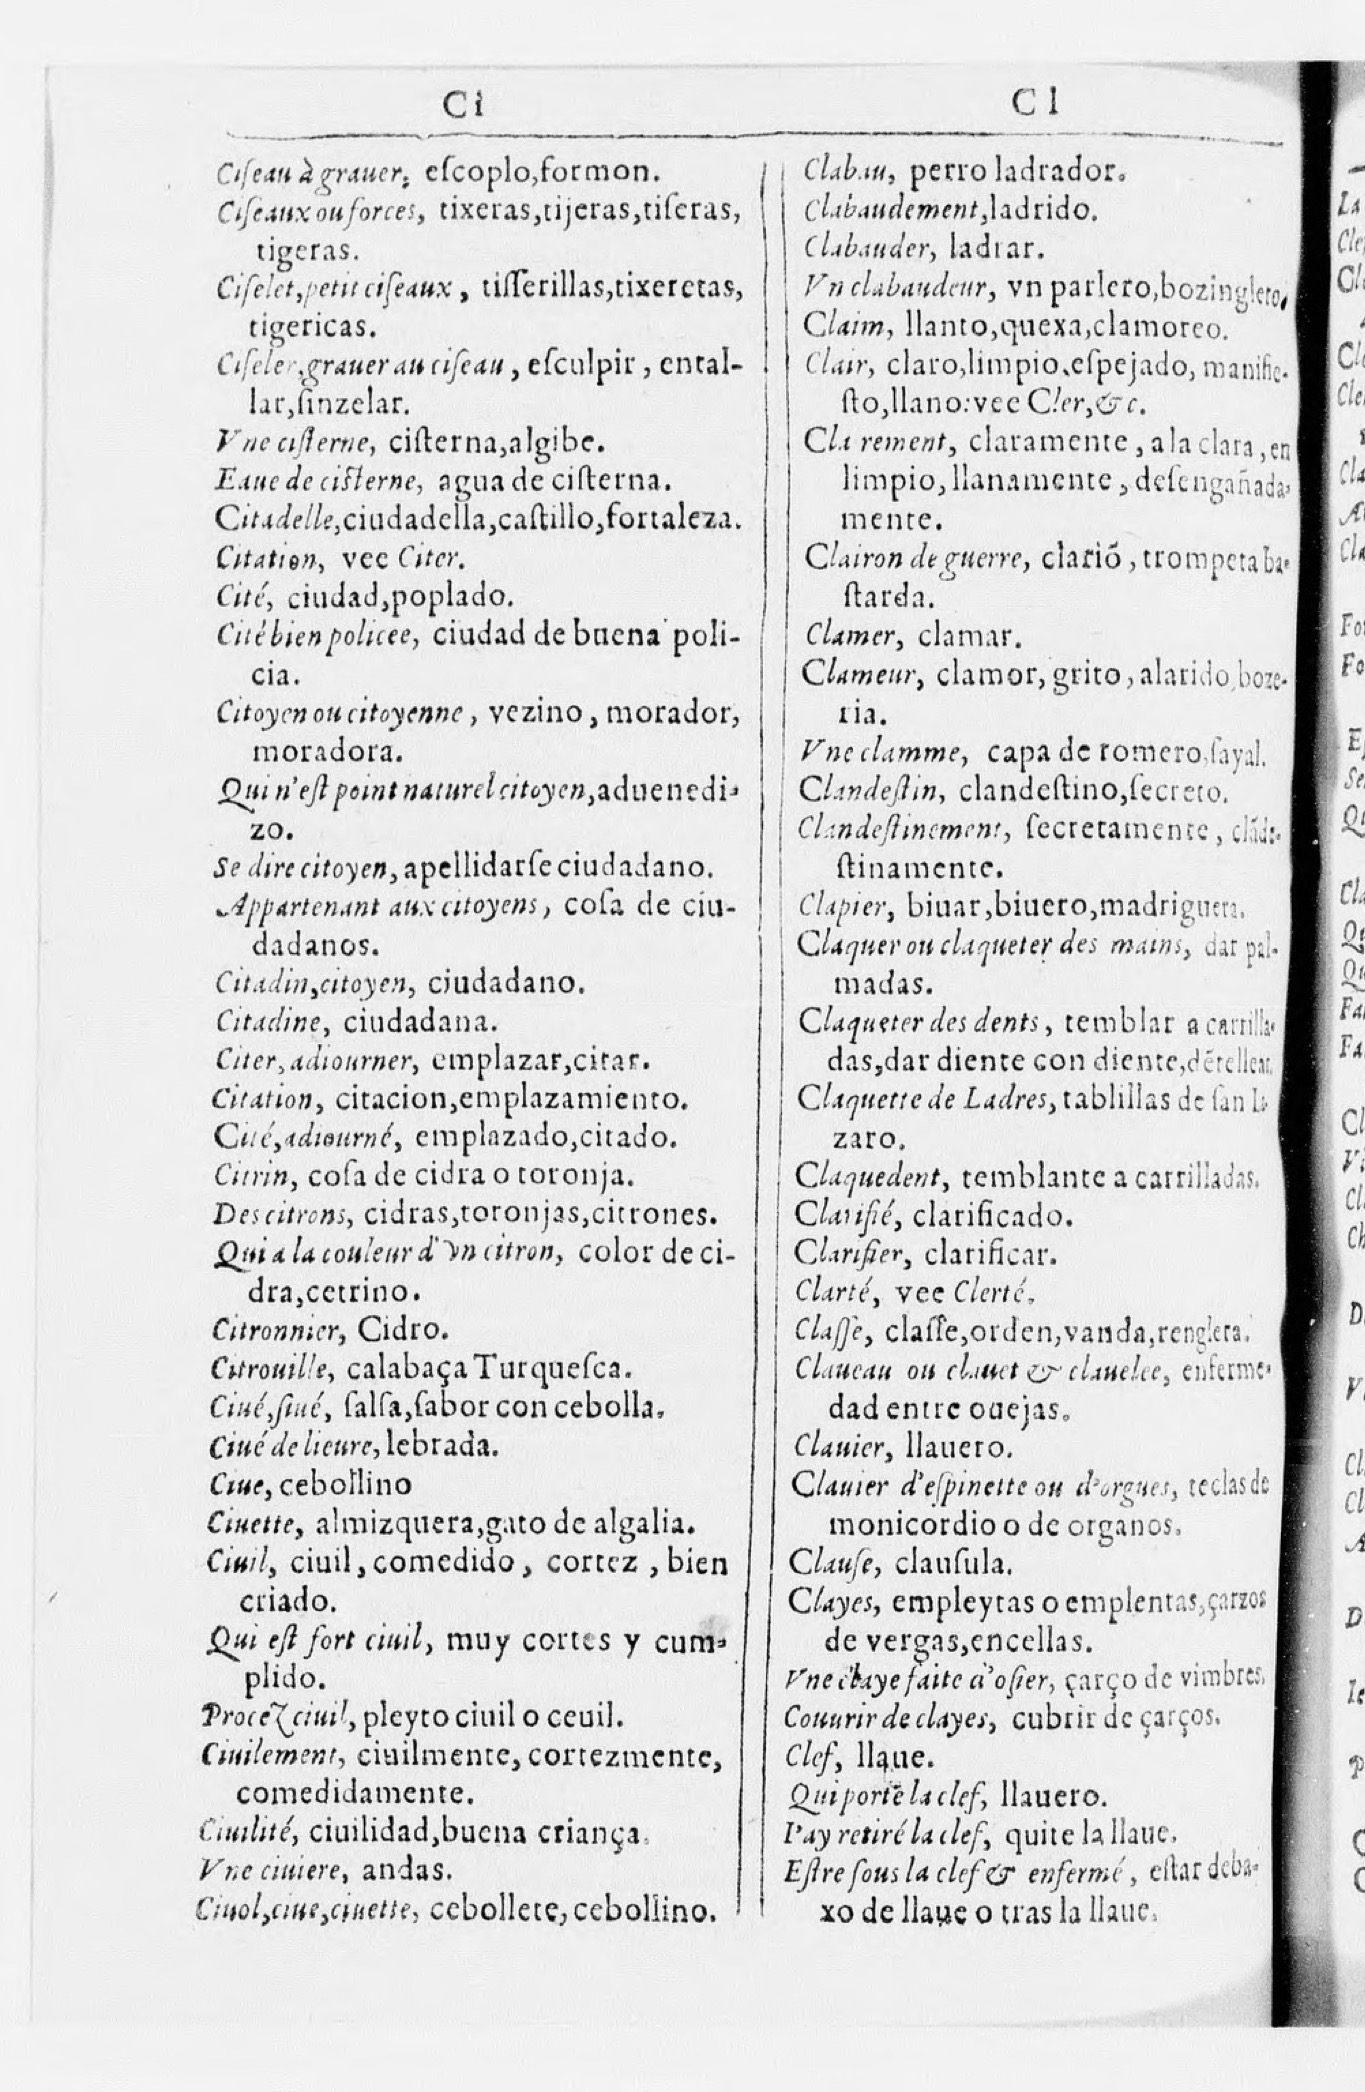 Ci
Ciſeau à grauer, eſcoplo,formon.
Ciſeaux ou forces, tixeras,tijeras,tiſeras,
tigeras.
Ciſelet,petit ciſeaux, tiſſerillas,tixeretas,
tigericas.
Ciſeler,grauer au ciſeau, eſculpir, ental-
lar,ſinzelar.
Vne ciſterne, ciſterna,algibe.
Eaue de ciſterne, agua de ciſterna.
Citadelle,ciudadella,caſtillo,fortaleza.
Citation, vee Citer.
Cité, ciudad,poplado.
Cité bien policee, ciudad de buena poli-
cia.
Citoyen ou citoyenne, vezino, morador,
moradora.
Qui n'eſt point naturel citoyen,aduenedi-
zo.
Se dire citoyen, apellidarſe ciudadano.
Appartenant aux citoyens, coſa de ciu-
dadanos.
Citadin,citoyen, ciudadano.
Citadine, ciudadana.
Citer,adiourner, emplazar,citar.
Citation, citacion,emplazamiento.
Cité,adiourné, emplazado,citado.
Citrin, coſa de cidra o toronja.
Des citrons, cidras,toronjas,citrones.
Qui a la couleur d'vn citron, color de ci-
dra,cetrino.
Citronnier, Cidro.
Citrouille, calabaça Turqueſca.
Ciué,ſiué, ſalſa,ſabor con cebolla.
Ciué de lieure, lebrada.
Ciue, cebollino
Ciuette, almizquera,gato de algalia.
Ciuil, ciuil, comedido, cortez, bien
criado.
Qui eſt fort ciuil, muy cortes y cum-
plido.
Procez ciuil, pleyto ciuil o ceuil.
Ciuilement, ciuilmente, cortezmente,
comedidamente.
Ciuilité, ciuilidad,buena criança.
Vne ciuiere, andas.
Ciuol,ciue,ciuette, cebollete, cebollino.
Cl
Clabau, perro ladrador.
Clabaudement,ladrido.
Clabauder, ladrar.
Vn clabaudeur, vn parlero,bozinglero.
Claim, llanto,quexa,clamoreo.
Clair, claro,limpio,eſpejado, manifie-
ſto,llano:vee Cler,&c.
Clarement, claramente, a la clara, en
limpio, llanamente, deſengañada-
mente.
Clairon de guerre, clariõ, trompeta ba-
ſtarda.
Clamer, clamar.
Clameur, clamor, grito, alarido,boze-
ria.
Vne clamme, capa de romero,ſayal.
Clandeſtin, clandeſtino,ſecreto.
Clandeſtinement, ſecretamente, clãde-
ſtinamente.
Clapier, biuar,biuero,madriguera.
Claquer ou claqueter des mains, dar pal-
madas.
Claqueter des dents, temblar a carrilla-
das,dar diente con diente,dẽtellear.
Claquette de Ladres, tablillas de ſan La-
zaro.
Claquedent, temblante a carrilladas.
Clarifié, clarificado.
Clarifier, clarificar.
Clarté, vee Clerté.
Claſſe, claſſe,orden,vanda,renglera.
Claueau ou clauet & clauelee, enferme-
dad entre ouejas.
Clauier, llauero.
Clauier d'eſpinette ou d'orgues, teclas de
monicordio o de organos.
Clauſe, clauſula.
Clayes, empleytas o emplentas,çarzos
de vergas,encellas.
Vne claye faite d'oſier, çarço de vimbres.
Couurir de clayes, cubrir de çarços.
Clef, llaue.
Qui porte la clef, llauero.
I'ay retiré la clef, quite la llaue.
Eſtre ſous la clef & enfermé, eſtar deba-
xo de llaue o tras la llaue.